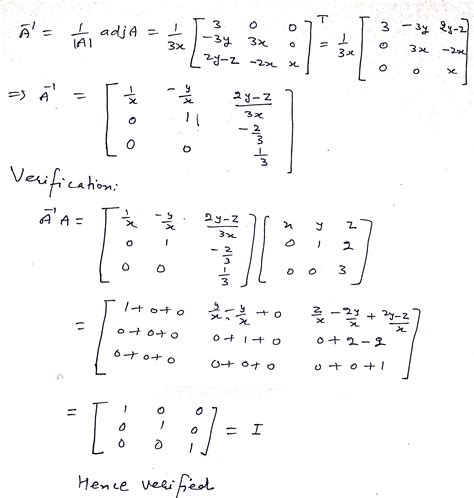 A⁻¹ = 1/|A| adj A = 1/3x [3 0 0; -3y 3x 0; 2y-z -2x x]ᵀ = 1/3x [3 -3y 2y-z; 0 3x -2x; 0 0 x]
=> A⁻¹ = [1/x -y/x 2y-z/3x; 0 1 -2/3; 0 0 1/3]
Verification:
A⁻¹ A = [1/x -y/x 2y-z/3x; 0 1 -2/3; 0 0 1/3] [x y z; 0 1 2; 0 0 3]
= [1+0+0 y/x - y/x + 0 z/x - 2y/x + 2y-z/x; 0+0+0 0+1+0 0+2-2; 0+0+0 0+0+0 0+0+1]
= [1 0 0; 0 1 0; 0 0 1] = I
Hence verified